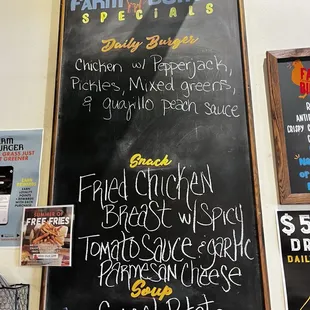 SPECIALS
Daily Burger
Chicken w/ Pepperjack,
Pickles, Mixed greens,
& guajillo peach sauce
Snack
Fried Chicken
Breast w/ Spicy
Tomato Sauce & garlic
Parmesan Cheese
Soup
BURGER
GRASS JUST
GREENER
SUMMER OF
FREE FRIES
$5
DAILY